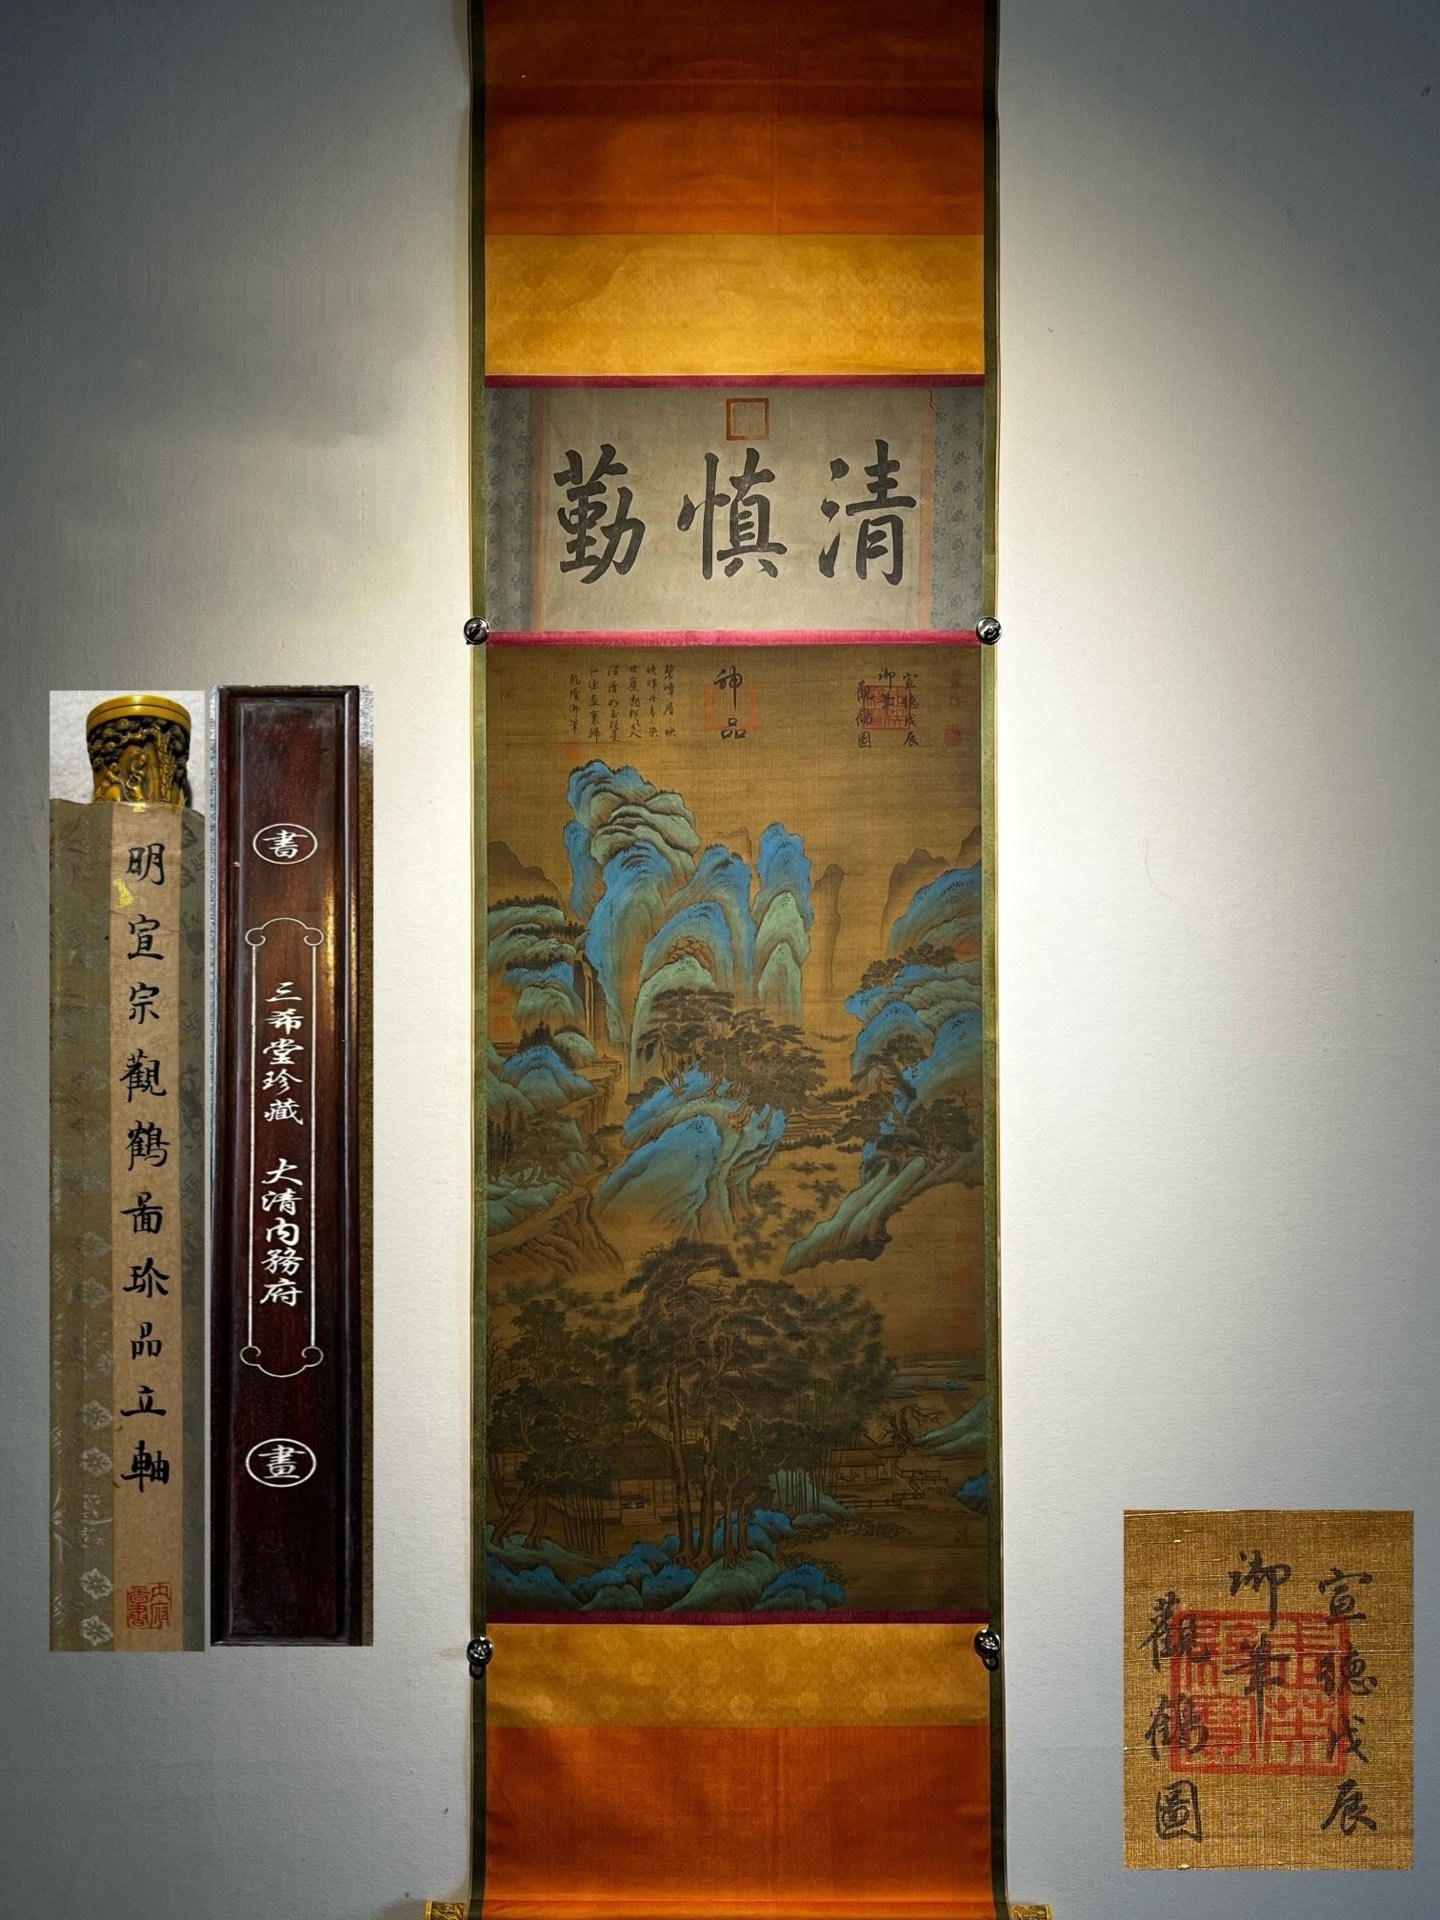 清慎勤
神品
宣德戊辰
御筆
觀鶴圖
乾隆御筆
明宣宗觀鶴啚珎品立軸
書
三希堂珍藏 大清内務府
畫
宣德戊辰
御筆
觀鶴圖